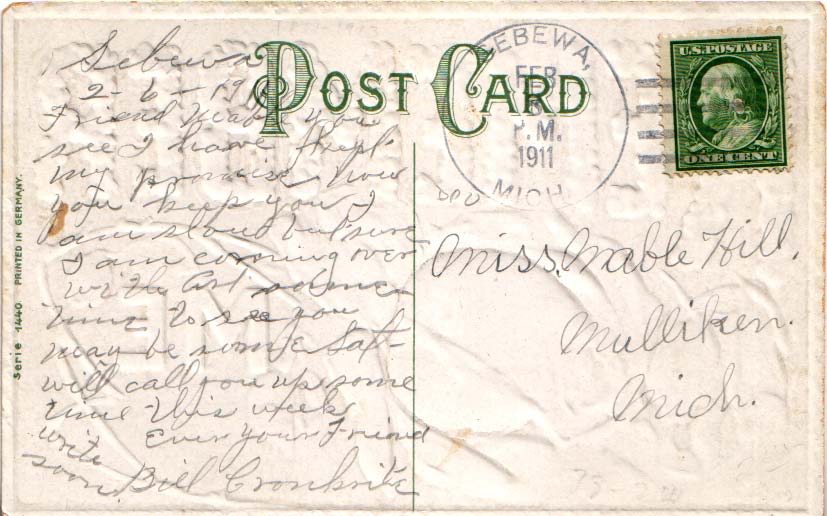 Sebewa
2-6-1911
Friend Mable you
see I have kept
my promise now
you keep you I
am slow but sure
I am coming over
with Art
time to see you
may be some Sat-
will call you up some
time this week
Ever your Friend
write
soon. Bill Cronkrite
POST CARD
SEBEWA,
FEB
6
P.M.
1911
MICH
U.S. POSTAGE
ONE CENT
Miss. Mable Hill.
Mulliken.
Mich.
Serie 1440. PRINTED IN GERMANY.